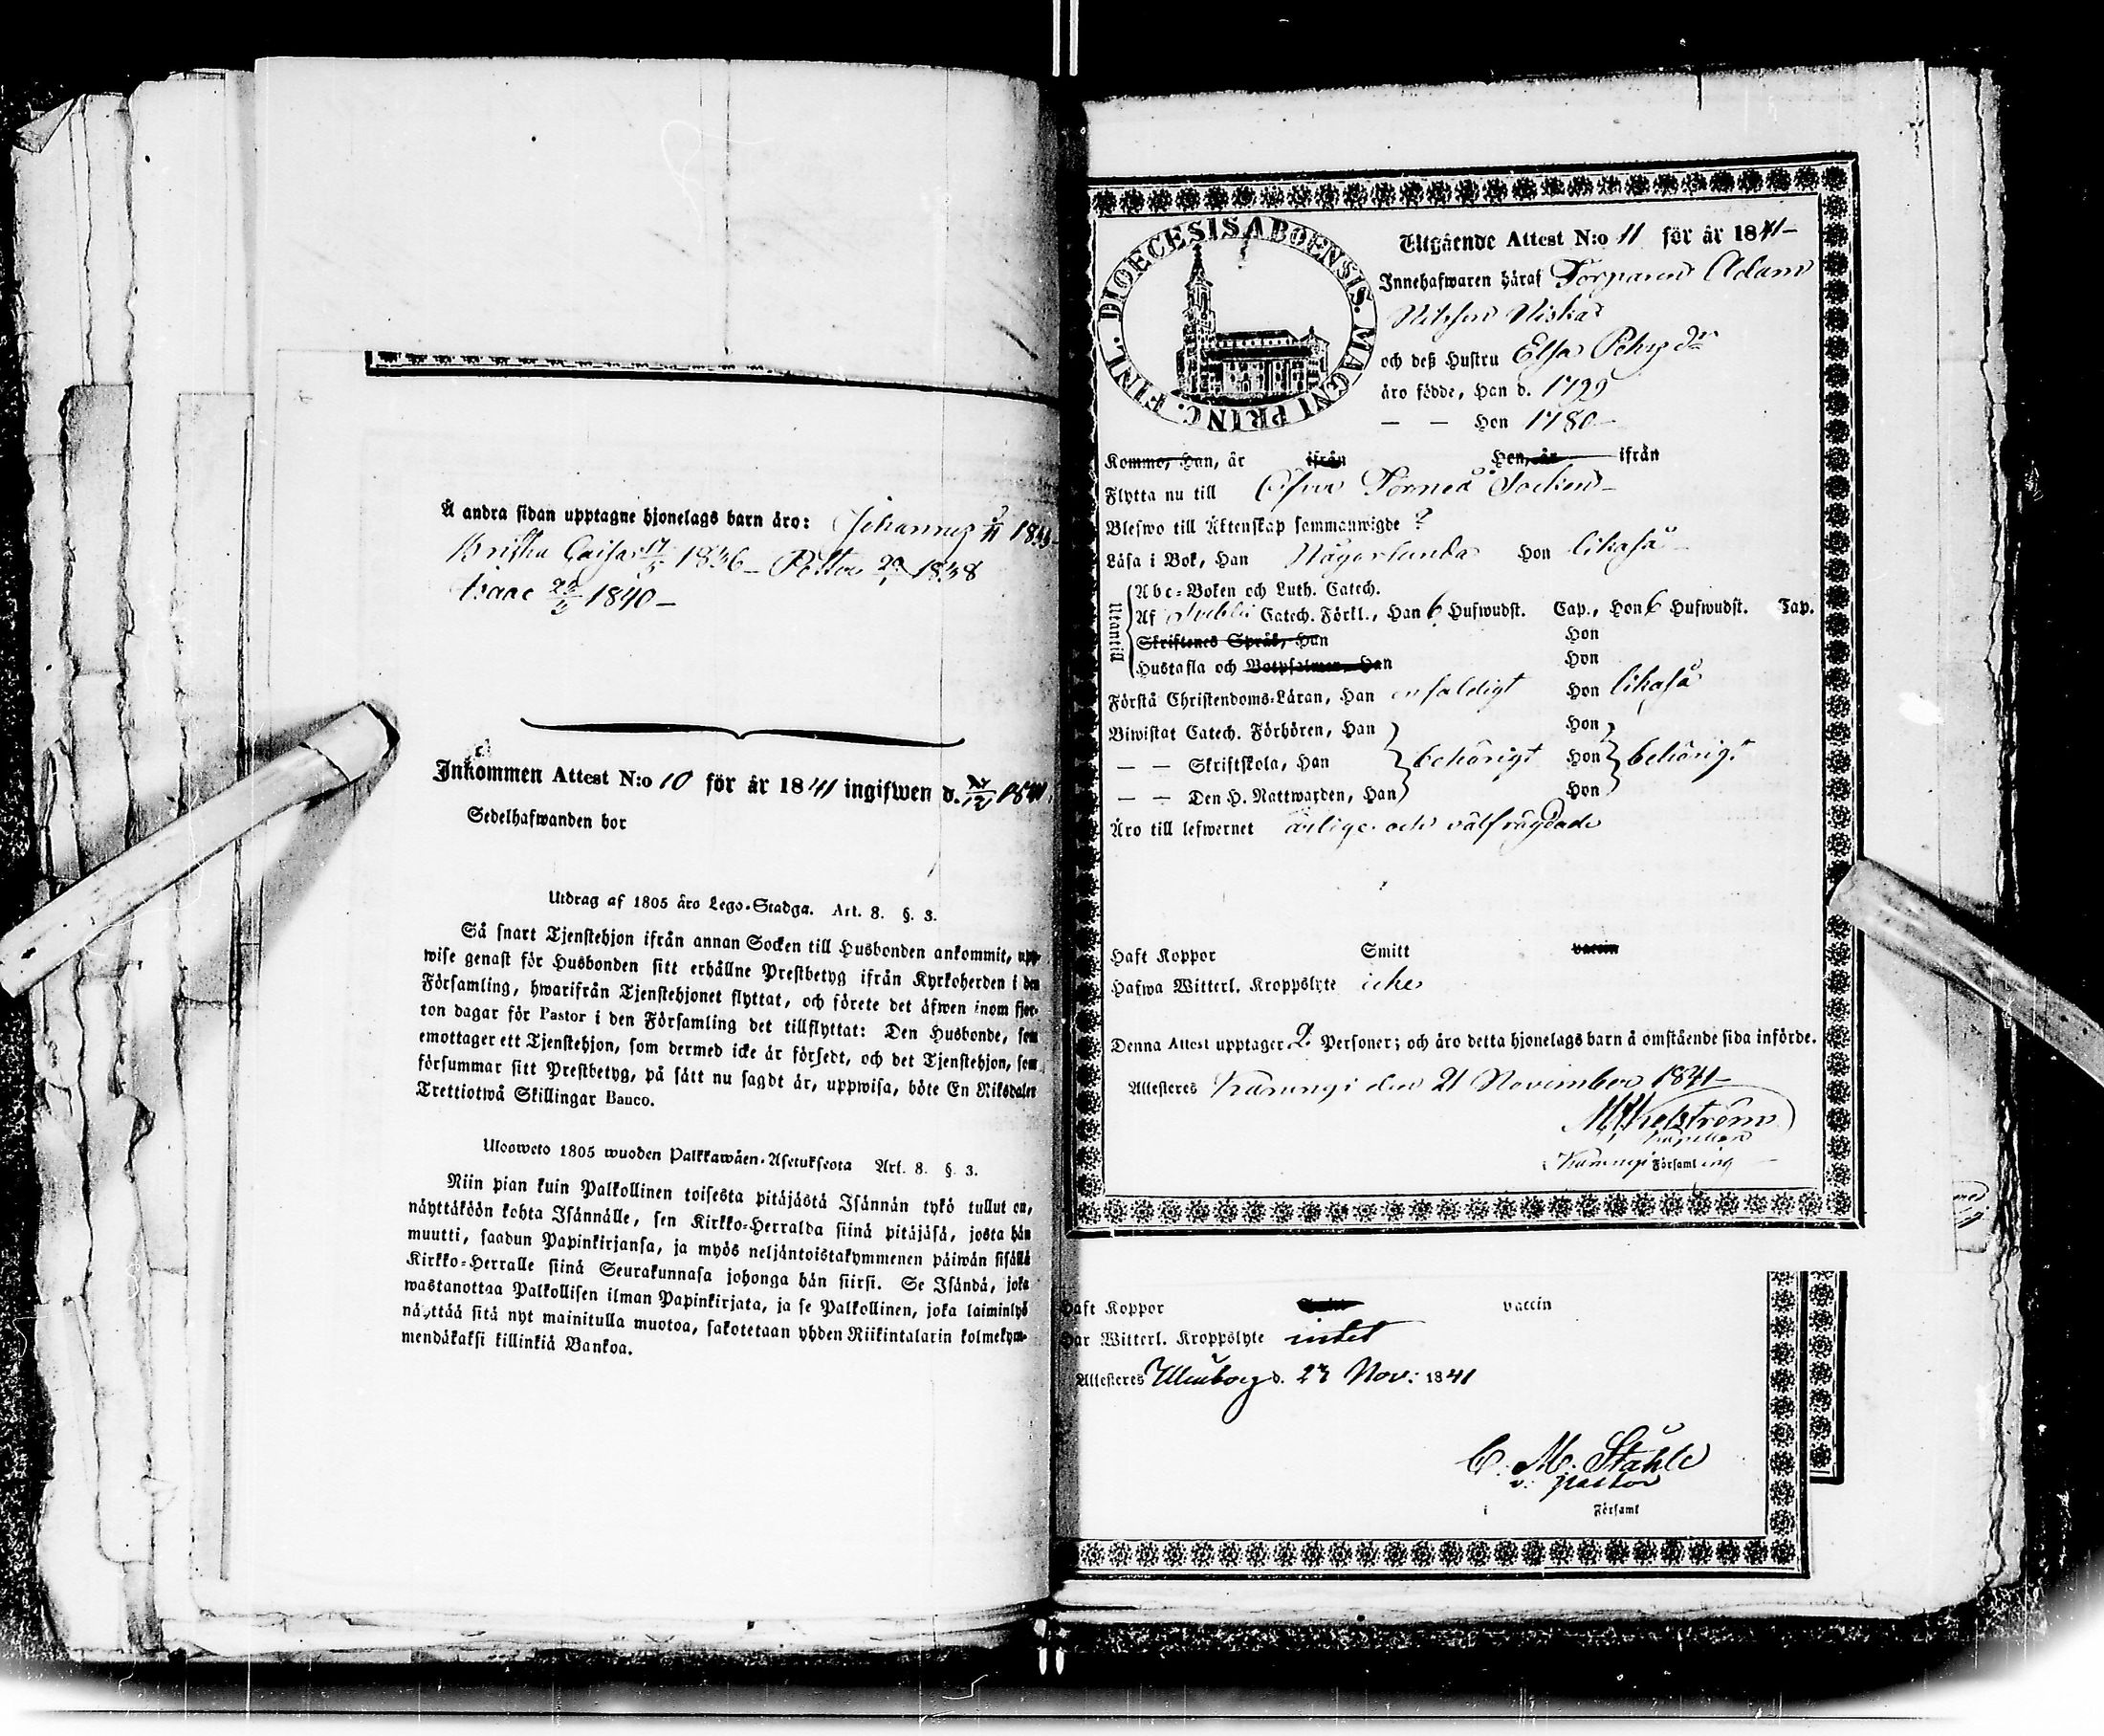 Å andra sidan upptagne hjonelags barn äro: Johannes 3/11 183
Briska Caisa 17/5 1836 – Petter 20/ 1838
Isaac 25/ 1840 –
Inkommen Attest N:o 10 för år 1841 ingifwen d. /12 1841
Sedelhafwanden bor
Utdrag af 1805 års Lego-Stadga. Art. 8. §. 3.
Så snart Tjenstehjon ifrån annan Socken till Husbonden ankommit, upp-
wise genast för Husbonden sitt erhållne Prestbetyg ifrån Kyrkoherden i den
Församling, hwarifrån Tjenstehjonet flyttat, och förete det äfwen inom fjor-
ton dagar för Pastor i den Församling det tillflyttat: Den Husbonde, som
emottager ett Tjenstehjon, som dermed icke är försedt, och det Tjenstehjon, som
försummar sitt Prestbetyg, på sätt nu sagdt är, uppwisa, böte En Riksdaler
Trettiotwå Skillingar Banco.
Ulosweto 1805 wuoden Palkkawäen-Asetuksesta Art. 8. §. 3.
Niin pian kuin Palkollinen toisesta pitäjästä Isännän tykö tullut on,
näyttäköön kohta Isännälle, sen Kirkko-Herralda siinä pitäjäsä, josta hän
muutti, saadun Papinkirjansa, ja myös neljäntoistakymmenen päiwän sisällä
Kirkko-Herralle siinä Seurakunnasa johonga hän siirsi. Se Isändä, joka
wastanottaa Palkollisen ilman Papinkirjata, ja se Palkollinen, joka laiminlyö
näyttää sitä nyt mainitulla muotoa, sakotetaan yhden Riikintalarin kolmekym-
mendäkaksi killinkiä Bankoa.
DIOECESIS ABOENSIS. MAGNI PRINC. FINL.
Utgående Attest N:o 11 för år 1841 –
Innehafwaren häraf Torparen Adam
Nilsson Niska
och deß Hustru Elsa Pehrs dr
äro födde, Han d. 1799
— — Hon 1780 –
Komne, Han, år ifrån Hon, år ifrån
Flytta nu till Öfver Torneå Socken –
Blefwo till Äktenskap sammanwigde ?
Läsa i Bok, Han Någorlunda Hon likaså –
Utantill
Abc-Boken och Luth. Catech.
Af Svebilii Catech. Förkl., Han 6 Hufwudst. Cap., Hon 6 Hufwudst. Cap.
Skriftenes Språk, Han Hon
Hustafla och Botpsalmer, Han Hon
Förstå Christendoms-Läran, Han enfaldigt Hon likaså
Biwistat Catech. Förhören, Han Hon
— — Skriftskola, Han behörigt Hon behörigt
— — Den H. Nattwarden, Han Hon
Äro till lefwernet ärlige och välfrägdade
Haft Koppor Smitt vaccin
Hafwa Witterl. Kroppslyte icke
Denna Attest upptager 2 Personer; och äro detta hjonelags barn å omstående sida införde.
Attesteres Karungi den 21 November 1841 –
Capellan
i Karungi Församling –
Haft Koppor Smitt vaccin
Har Witterl. Kroppslyte intet
Attesteres Uleåborg d. 23 Nov: 1841
C. M. Ståhle
v. pastor
i Församl